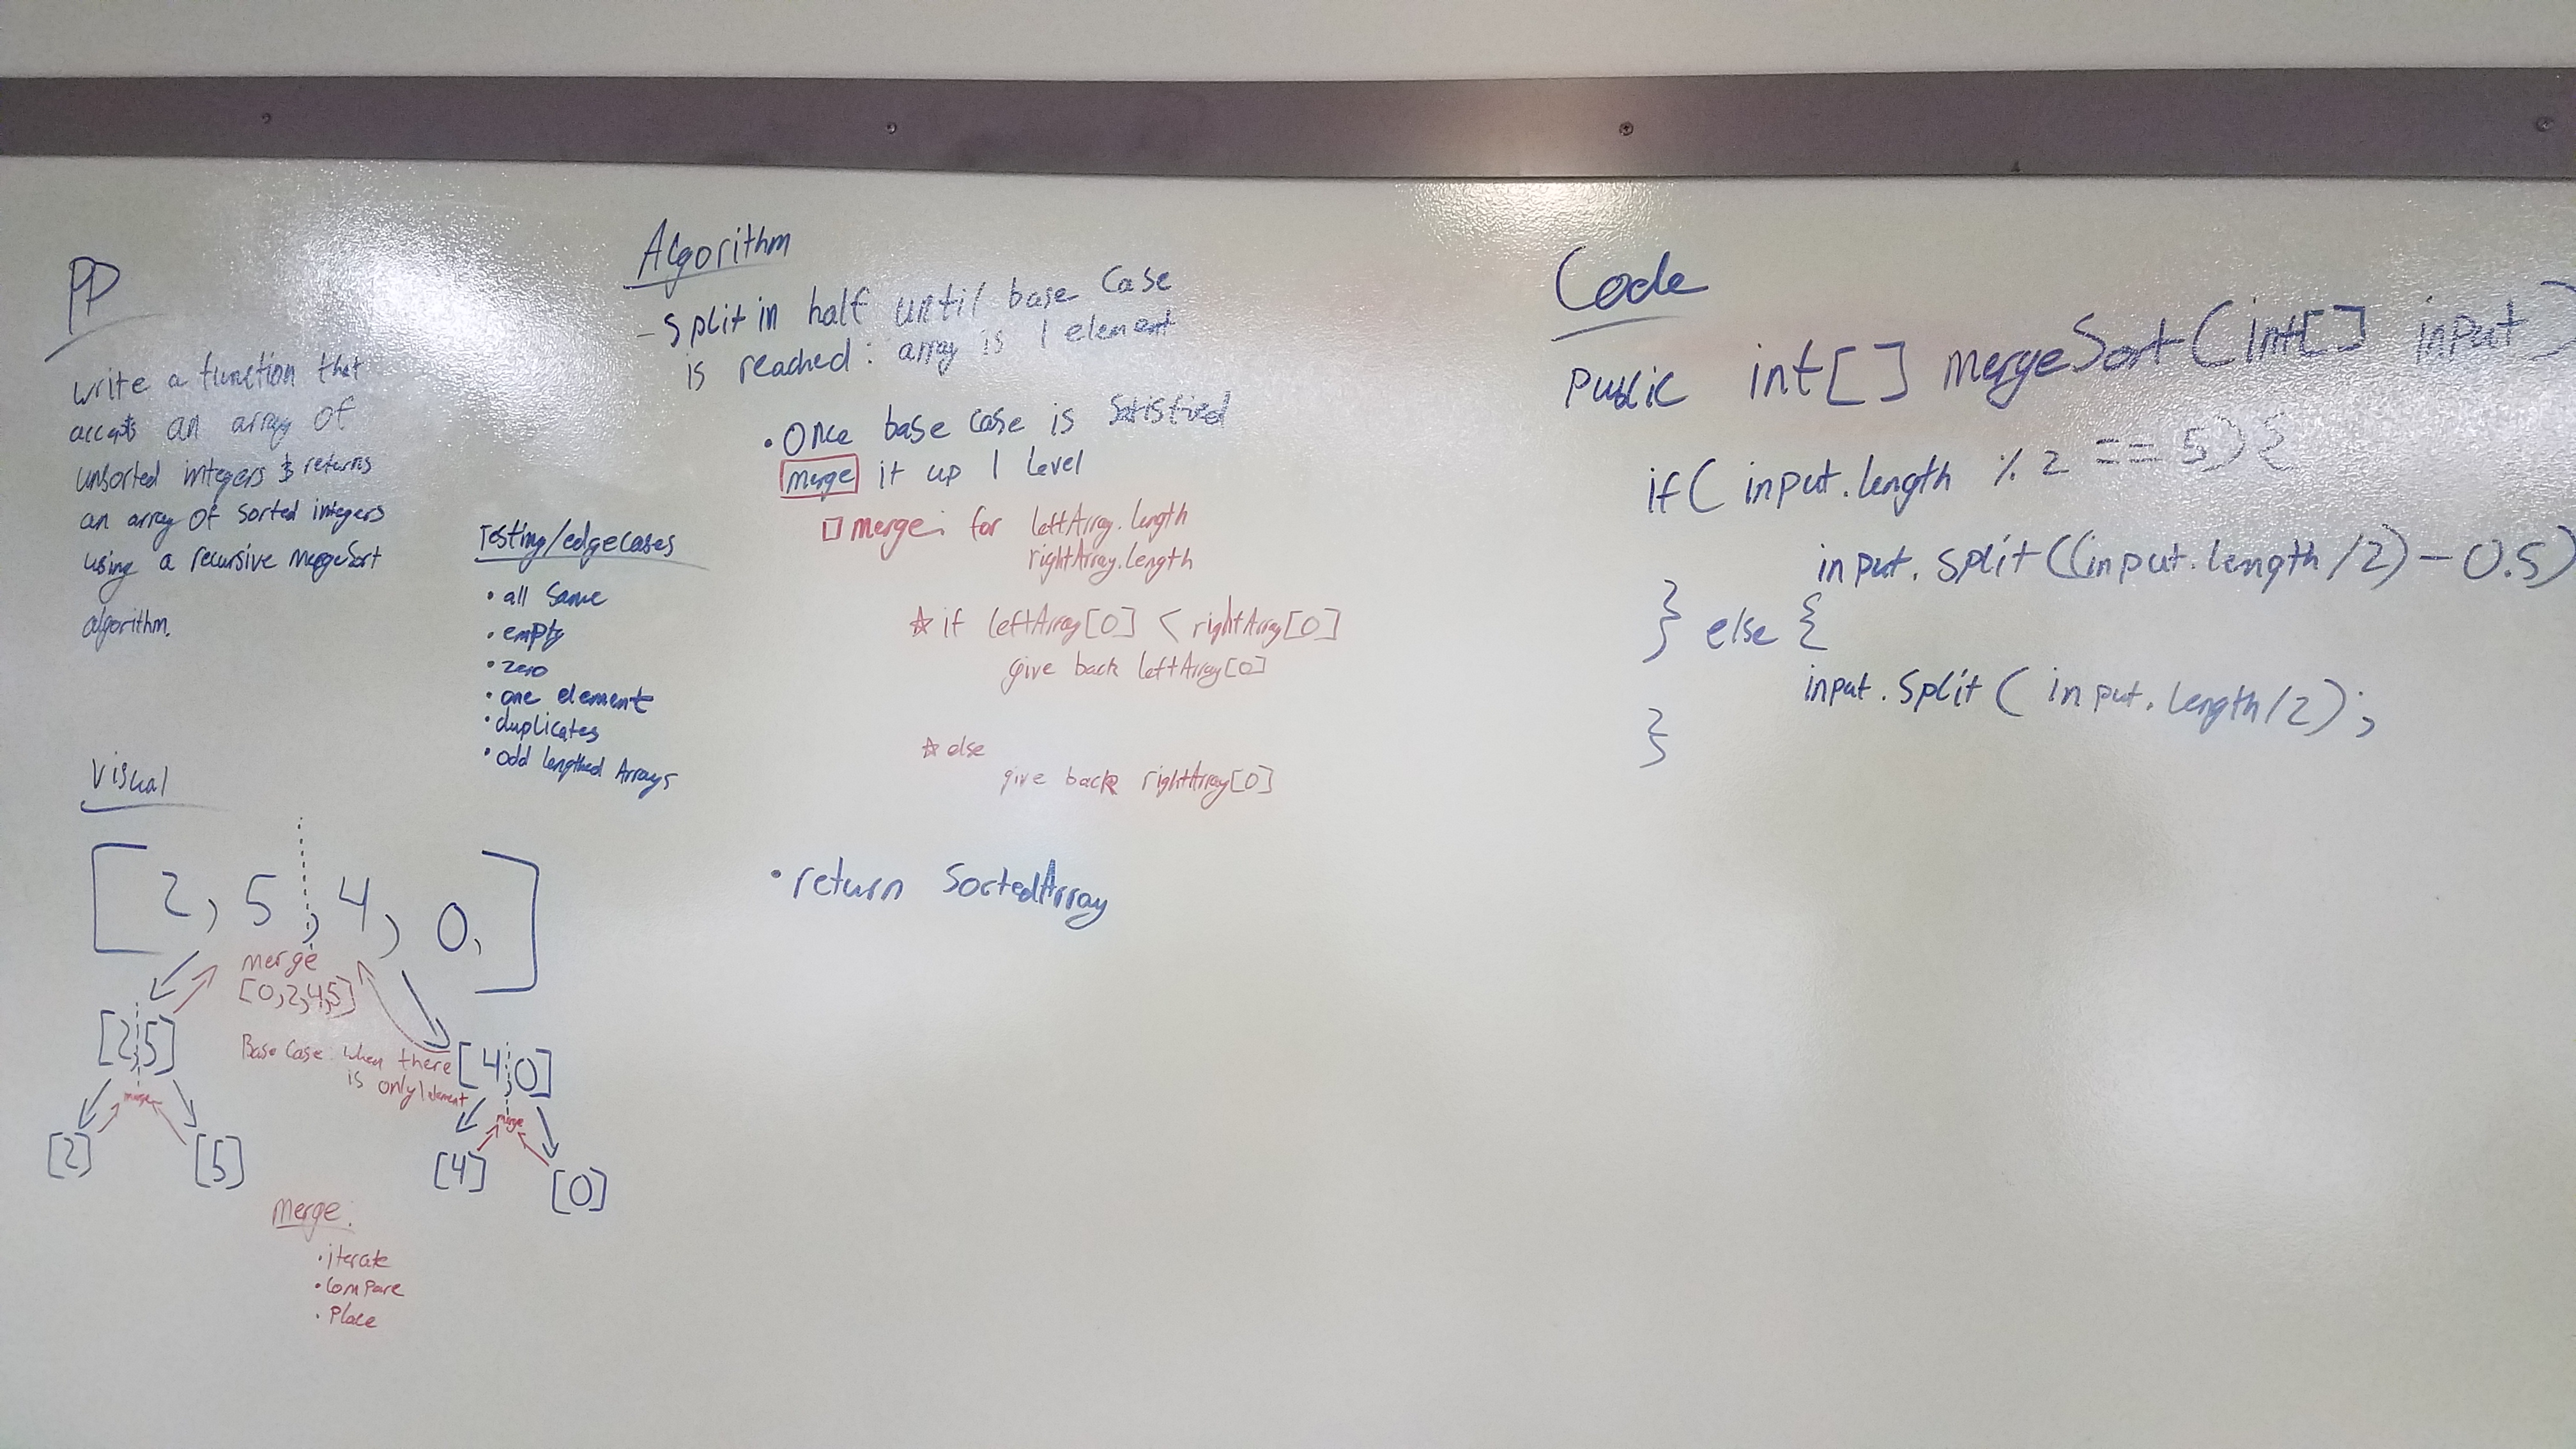 PP
write a function that
accepts an array of
unsorted integers & returns
an array of sorted integers
using a recursive mergeSort
algorithm.
Visual
[2, 5, 4, 0,]
merge
[0,2,4,5]
[2,5]
Base Case: when there
is only 1 element
[4,0]
merge
merge
[2]
[5]
[4]
[0]
merge:
• iterate
• Compare
• Place
Testing/edgecases
• all Same
• empty
• zero
• one element
• duplicates
• odd lengthed Arrays
Algorithm
- Split in half until base Case
is reached: array is 1 element
• Once base case is Satisfied
merge it up 1 level
merge: for leftArray.length
rightArray.length
☆ if leftArray[0] < rightArray[0]
give back leftArray[0]
☆ else
give back rightArray[0]
• return SortedArray
Code
Public int[] mergeSort(int[] input)
if( input.length % 2 == 5){
input.split((input.length/2)-0.5)
} else {
input.split( input.length/2);
}